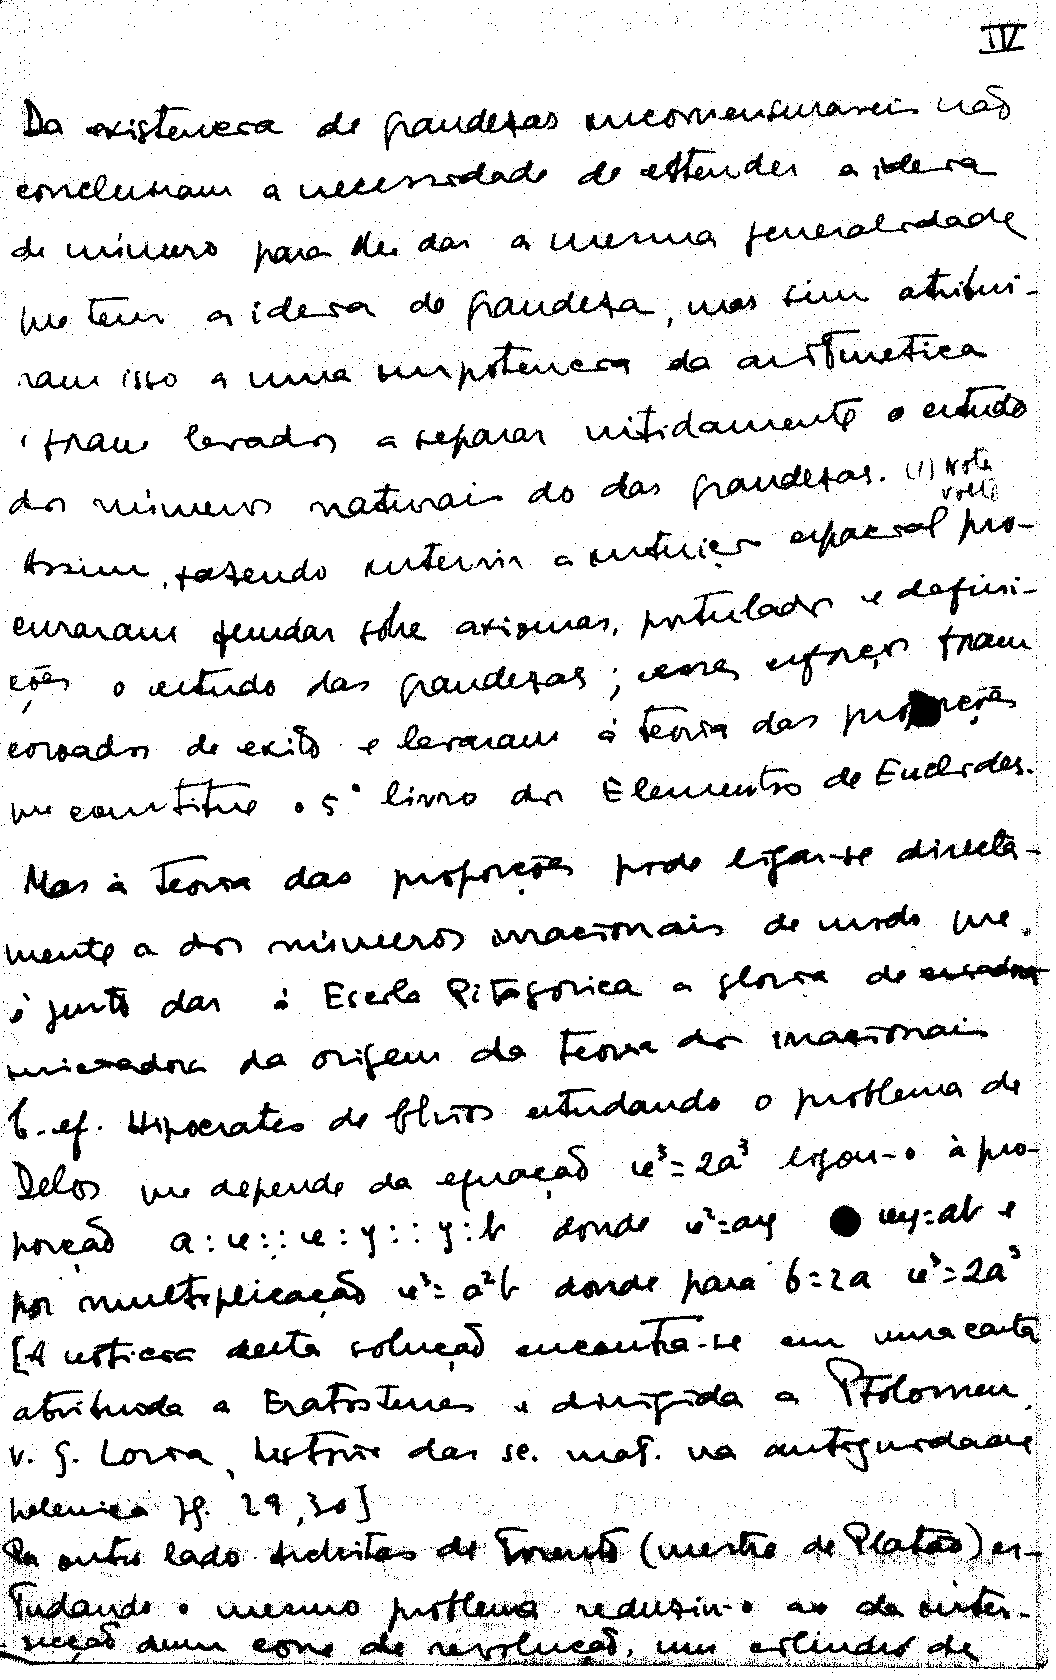 IV
Da existencia de grandezas incomensuraveis não
concluiram a necessidade de estender a ideia
de número para lhe dar a mesma generalidade
que tem a ideia de grandeza, mas sim atribui-
ram isso a uma impotencia da aritmetica
e foram levados a separar nitidamente o estudo
dos números naturais do das grandezas. (1) Nota
volta
Assim, fazendo intervir a intuição espacial pro-
curaram fundar sobre axiomas, postulados e defini-
ções o estudo das grandezas; esses esforços foram
coroados de exito e levaram á teoria das proporções
que constitue o 5º livro dos Elementos de Euclides.
Mas á teoria das proporções pode ligar-se directa-
mente a dos números irracionais de modo que
é justo dar á Escola Pitagorica a gloria de
iniciadora da origem da teoria dos irracionais
Hipocrates de Chios estudando o problema de
Delos que depende da equação x³=2a³ ligou-o à pro-
porção a:x::x:y::y:b donde x²=ay xy=ab e
por multiplicação x³=a²b donde para b=2a x³=2a³
[A noticia desta solução encontra-se em uma carta
atribuida a Eratostenes e dirigida a Ptolomeu
v. G. Loria, historia das sc. mat. na antiguidade
helenica pg. 29,30]
Por outro lado Architas de Tarento (mestre de Platão) es-
tudando o mesmo problema reduziu-o ao da inter-
secção dum cone de revolução, um cilindro de